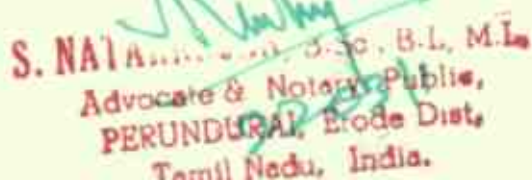 S. NATA B.Sc., B.L., M.L.
Advocate & Notary Public,
PERUNDURAI, Erode Dist,
Tamil Nadu, India.